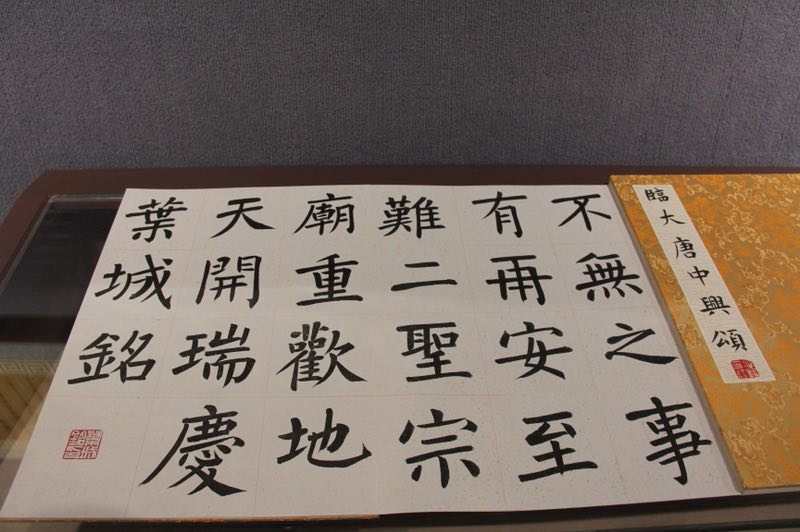 臨大唐中興頌
不無之事
有再安至
難二聖宗
廟重歡地
天開瑞慶
葉城銘